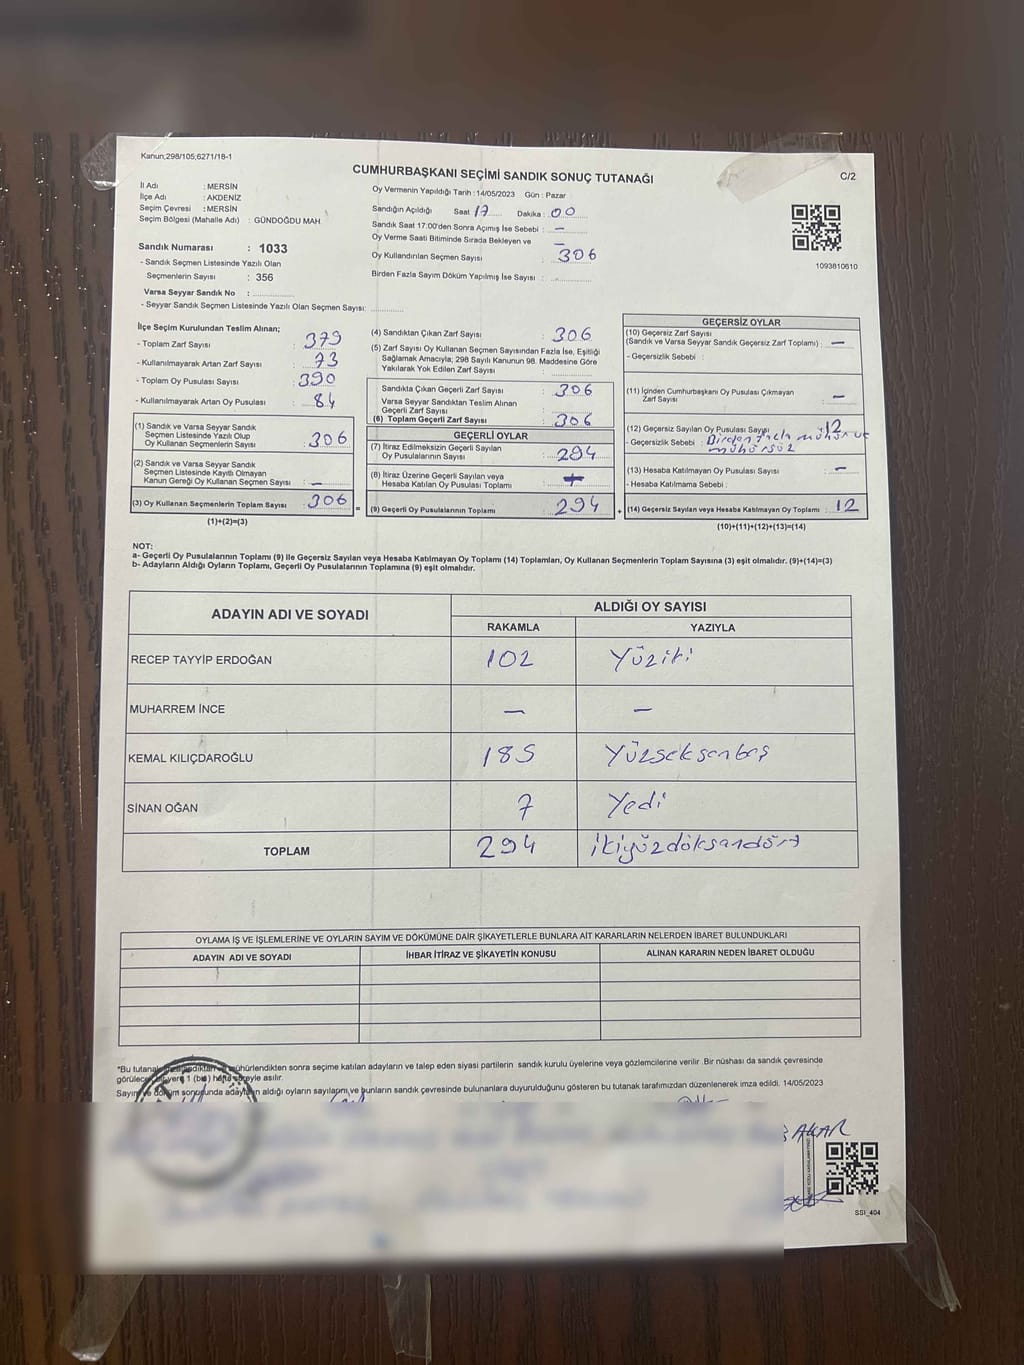 Kanun;298/105;6271/18-1
CUMHURBAŞKANI SEÇİMİ SANDIK SONUÇ TUTANAĞI
C/2
İl Adı : MERSİN
İlçe Adı : AKDENİZ
Seçim Çevresi : MERSİN
Seçim Bölgesi (Mahalle Adı) : GÜNDOĞDU MAH
Sandık Numarası : 1033
- Sandık Seçmen Listesinde Yazılı Olan
Seçmenlerin Sayısı : 356
Varsa Seyyar Sandık No :
- Seyyar Sandık Seçmen Listesinde Yazılı Olan Seçmen Sayısı:
Oy Vermenin Yapıldığı Tarih : 14/05/2023 Gün : Pazar
Sandığın Açıldığı Saat 17 Dakika : 00
Sandık Saat 17.00'den Sonra Açımış İse Sebebi : -
Oy Verme Saati Bitiminde Sırada Bekleyen ve -
Oy Kullandırılan Seçmen Sayısı : 306
Birden Fazla Sayım Döküm Yapılmış İse Sayısı :
1093810610
İlçe Seçim Kurulundan Teslim Alınan;
- Toplam Zarf Sayısı : 379
- Kullanılmayarak Artan Zarf Sayısı : 73
- Toplam Oy Pusulası Sayısı : 390
- Kullanılmayarak Artan Oy Pusulası : 84
(1) Sandık ve Varsa Seyyar Sandık
Seçmen Listesinde Yazılı Olup
Oy Kullanan Seçmenlerin Sayısı : 306
(2) Sandık ve Varsa Seyyar Sandık
Seçmen Listesinde Kayıtlı Olmayan
Kanun Gereği Oy Kullanan Seçmen Sayısı : -
(3) Oy Kullanan Seçmenlerin Toplam Sayısı : 306
(1)+(2)=(3)
(4) Sandıktan Çıkan Zarf Sayısı : 306
(5) Zarf Sayısı Oy Kullanan Seçmen Sayısından Fazla İse, Eşitliği
Sağlamak Amacıyla; 298 Sayılı Kanunun 98. Maddesine Göre
Yakılarak Yok Edilen Zarf Sayısı :
Sandıkta Çıkan Geçerli Zarf Sayısı : 306
Varsa Seyyar Sandıktan Teslim Alınan
Geçerli Zarf Sayısı :
(6) Toplam Geçerli Zarf Sayısı : 306
GEÇERLİ OYLAR
(7) İtiraz Edilmeksizin Geçerli Sayılan
Oy Pusulalarının Sayısı : 294
(8) İtiraz Üzerine Geçerli Sayılan veya
Hesaba Katılan Oy Pusulası Toplamı :
(9) Geçerli Oy Pusulalarının Toplamı : 294
GEÇERSİZ OYLAR
(10) Geçersiz Zarf Sayısı
(Sandık ve Varsa Seyyar Sandık Geçersiz Zarf Toplamı) : -
- Geçersizlik Sebebi :
(11) İçinden Cumhurbaşkanı Oy Pusulası Çıkmayan
Zarf Sayısı : -
(12) Geçersiz Sayılan Oy Pusulası Sayısı : 12
- Geçersizlik Sebebi : Birden fazla mühür ve
mühürsüz
(13) Hesaba Katılmayan Oy Pusulası Sayısı : -
- Hesaba Katılmama Sebebi :
(14) Geçersiz Sayılan veya Hesaba Katılmayan Oy Toplamı : 12
(10)+(11)+(12)+(13)=(14)
NOT:
a- Geçerli Oy Pusulalarının Toplamı (9) ile Geçersiz Sayılan veya Hesaba Katılmayan Oy Toplamı (14) Toplamları, Oy Kullanan Seçmenlerin Toplam Sayısına (3) eşit olmalıdır. (9)+(14)=(3)
b- Adayların Aldığı Oyların Toplamı, Geçerli Oy Pusulalarının Toplamına (9) eşit olmalıdır.
ADAYIN ADI VE SOYADI
ALDIĞI OY SAYISI
RAKAMLA YAZIYLA
RECEP TAYYİP ERDOĞAN 102 Yüziki
MUHARREM İNCE - -
KEMAL KILIÇDAROĞLU 185 Yüzseksenbeş
SİNAN OĞAN 7 Yedi
TOPLAM 294 ikiyüzdöksandört
OYLAMA İŞ VE İŞLEMLERİNE VE OYLARIN SAYIM VE DÖKÜMÜNE DAİR ŞİKAYETLERLE BUNLARA AİT KARARLARIN NELERDEN İBARET BULUNDUKLARI
ADAYIN ADI VE SOYADI İHBAR İTİRAZ VE ŞİKAYETİN KONUSU ALINAN KARARIN NEDEN İBARET OLDUĞU
*Bu tutanak mühürlendikten sonra seçime katılan adayların ve talep eden siyasi partilerin sandık kurulu üyelerine veya gözlemcilerine verilir. Bir nüshası da sandık çevresinde
yere 1 (bir) hafta süreyle asılır.
Sayım ve döküm sonucunda adayların aldığı oyların sayılarını ve bunların sandık çevresinde bulunanlara duyurulduğunu gösteren bu tutanak tarafımızdan düzenlenerek imza edildi. 14/05/2023
AKAR
SSI_404